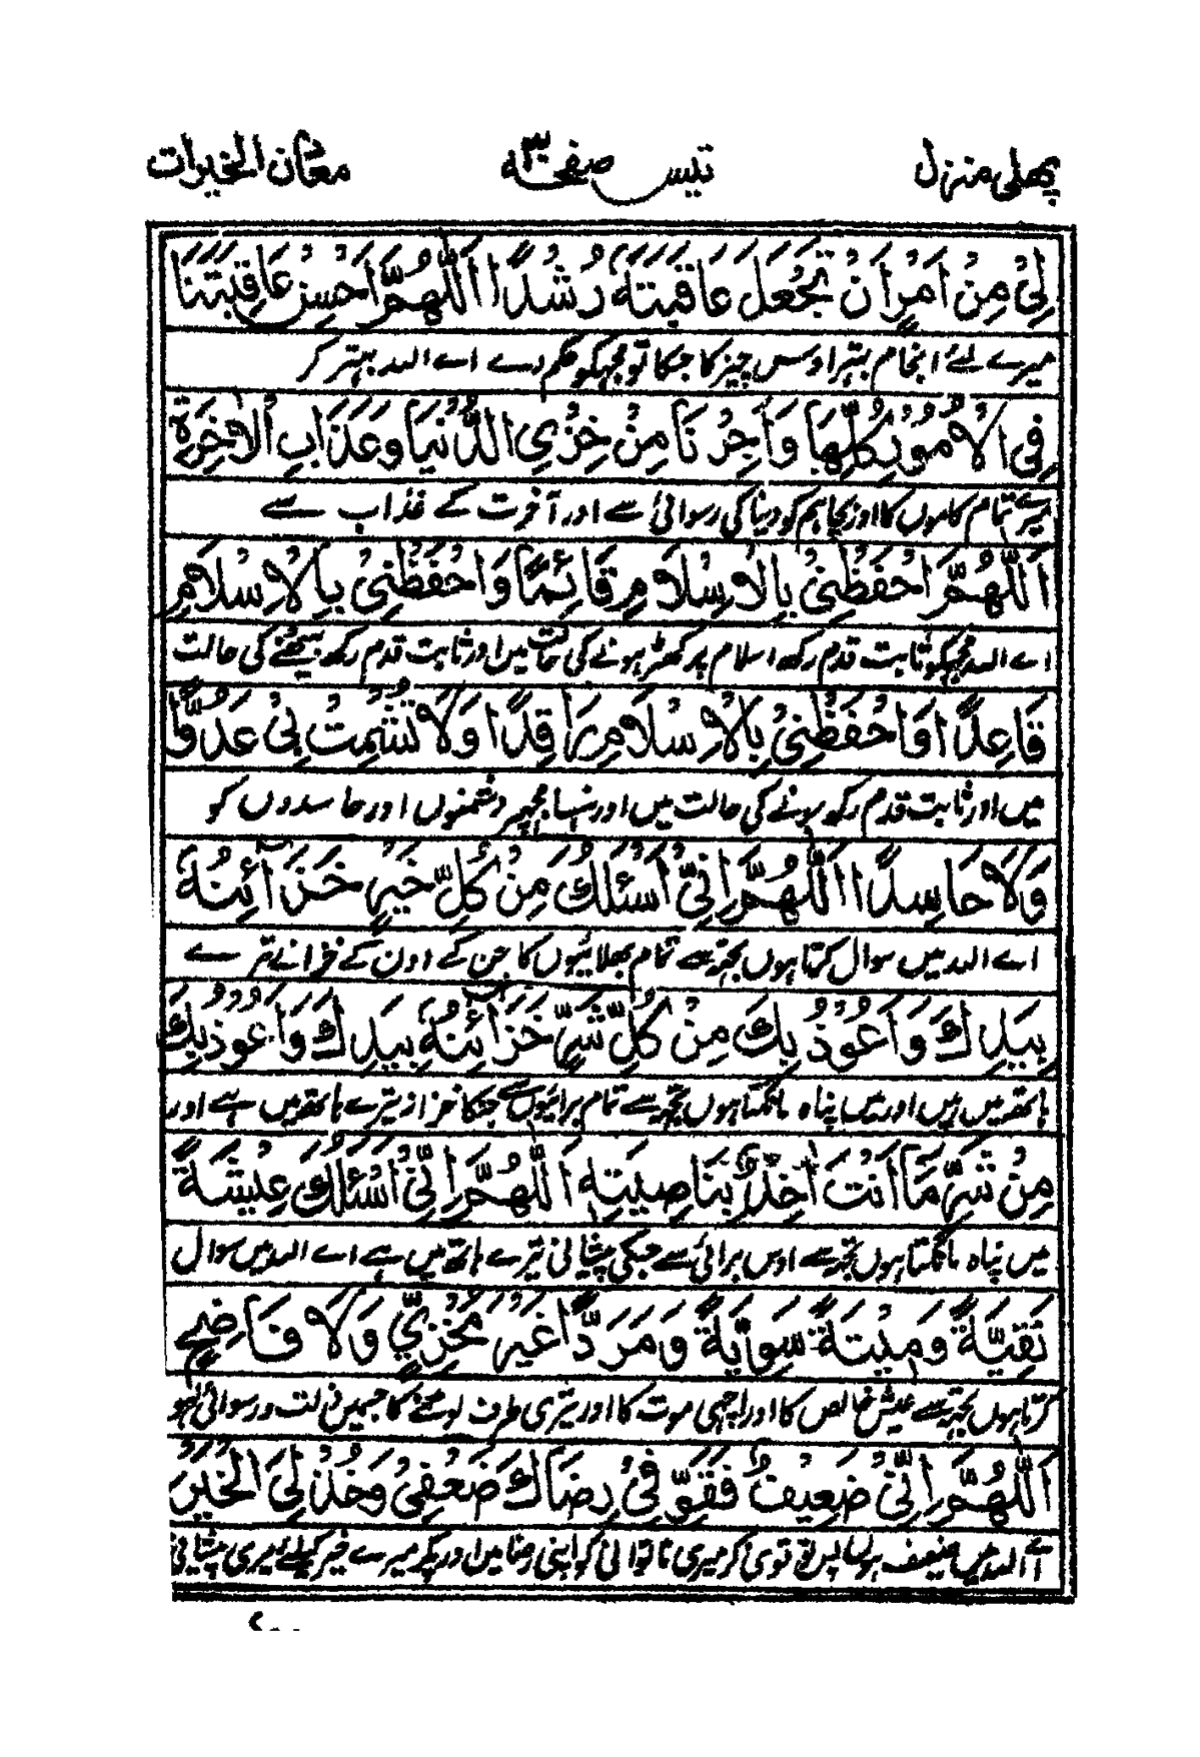 پہلی منزل تیس صفحہ ۳۰ معان الخیرات
لِیْ مِنْ اَمْرٍ اَنْ تَجْعَلَ عَاقِبَتَهٗ رُشْدًا اَللّٰهُمَّ اَحْسِنْ عَاقِبَتَنَا
میرے لئے انجام بہتر اوس چیز کا جسکا تو مجہکو حکم دے اے اللہ بہتر کر
فِی الْاُمُوْرِ كُلِّهَا وَاَجِرْنَا مِنْ خِزْیِ الدُّنْیَا وَعَذَابِ الْاٰخِرَةِ
میرے تمام کاموں کا اور بچا ہم کو دنیا کی رسوائی سے اور آخرت کے عذاب سے
اَللّٰهُمَّ احْفَظْنِیْ بِالْاِسْلَامِ قَائِمًا وَاحْفَظْنِیْ بِالْاِسْلَامِ
اے اللہ مجہکو ثابت قدم رکھ اسلام پر کھڑے ہونے کی حالت میں اور ثابت قدم رکھ بیٹھنے کی حالت
قَاعِدًا وَاحْفَظْنِیْ بِالْاِسْلَامِ رَاقِدًا وَلَا تُشْمِتْ بِیْ عَدُوًّا
میں اور ثابت قدم رکھ سونے کی حالت میں اور نہ ہنسا مجہپر دشمنوں اور حاسدوں کو
وَلَا حَاسِدًا اَللّٰهُمَّ اِنِّیْ اَسْئَلُكَ مِنْ كُلِّ خَیْرٍ خَزَآئِنُهٗ
اے اللہ میں سوال کرتا ہوں تجہ سے تمام بھلائیوں کا جن کے اون کے خزانے تیرے
بِیَدِكَ وَاَعُوْذُ بِكَ مِنْ كُلِّ شَرٍّ خَزَآئِنُهٗ بِیَدِكَ وَاَعُوْذُ بِكَ
ہاتھ میں ہیں اور میں پناہ مانگتا ہوں تجھ سے تمام برائیوں سے جنکا خزانہ تیرے ہاتھ میں ہے اور
مِنْ شَرِّ مَا اَنْتَ اٰخِذٌۢ بِنَاصِیَتِهٖ اَللّٰهُمَّ اِنِّیْ اَسْئَلُكَ عِیْشَةً
میں پناہ مانگتا ہوں تجھ سے اوس برائی سے جسکی پیشانی تیرے ہاتھ میں ہے اے اللہ میں سوال
نَقِیَّةً وَمِیْتَةً سَوِیَّةً وَمَرَدًّا غَیْرَ مُخْزِیٍّ وَلَا فَاضِحٍ
کرتا ہوں تجہ سے عیش خالص کا اور اچہی موت کا اور تیری طرف لوٹنے کا جسمیں ذلت و رسوائی نہو
اَللّٰهُمَّ اِنِّیْ ضَعِیْفٌ فَقَوِّ فِیْ رِضَاكَ ضَعْفِیْ وَخُذْ لِیَ الْخَیْرَ
اے اللہ میں ضعیف ہوں پس تو قوی کر میری ناتوانی کو اپنی رضا میں اور پکڑ میرے خیر کیلئے میری پیشانی